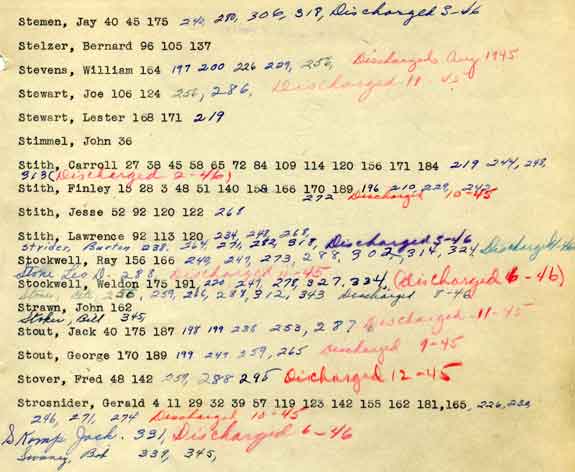 Stemen, Jay 40 45 175 240, 280, 306, 318, Discharged 3-46
Stelzer, Bernard 96 105 137
Stevens, William 164 197 200 226 229, 256, Discharged Aug 1945
Stewart, Joe 106 124 256, 286, Discharged 11-45
Stewart, Lester 168 171 219
Stimmel, John 36
Stith, Carroll 27 38 45 58 65 72 84 109 114 120 156 171 184 219 244, 248,
313 (Discharged 2-46)
Stith, Finley 15 28 3 48 51 140 158 166 170 189 196 210, 229, 242
272 Discharged 10-45
Stith, Jesse 52 92 120 122 268
Stith, Lawrence 92 113 120 234, 248, 268,
Strider, Burton 238, 264, 271, 282, 318, Discharged 3-46
Stockwell, Ray 156 166 240, 247, 273, 288, 302, 314, 324 Discharged
Stone Leo D. 288 Discharged 11-45
Stockwell, Weldon 175 191, 220 247, 278, 327, 334, (Discharged 6-46)
256, 259, 286, 288, 312, 343 Discharged 8-46
Strawn, John 162
Stoker, Bill 345,
Stout, Jack 40 175 187 198 199 238 253, 287 Discharged 11-45
Stout, George 170 189 199 247 259, 265 Discharged 9-45
Stover, Fred 48 142 259, 288 295 Discharged 12-45
Strosnider, Gerald 4 11 29 32 39 57 119 123 142 155 162 181,165, 226, 233
246, 271, 274 Discharged 10-45
Skomp Jack. 331, Discharged 6-46
Swaney, Bob 339, 345,